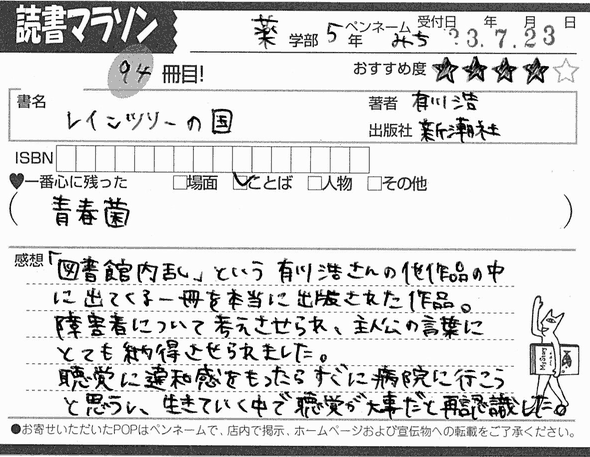 読書マラソン
薬 学部 5 年 ペンネーム みち 受付日 年 月 日 23.7.23
94 冊目! おすすめ度 ★★★★☆
書名 レインツリーの国 著者 有川浩
出版社 新潮社
ISBN
♥一番心に残った □場面 ☑ことば □人物 □その他
(青春菌)
感想 「図書館内乱」という有川浩さんの他作品の中
に出てくる一冊を本当に出版された作品。
障害者について考えさせられ、主人公の言葉に
とても納得させられました。
聴覚に違和感をもったらすぐに病院に行こう
と思うし、生きていく中で聴覚が大事だと再認識した。
●お寄せいただいたPOPはペンネームで、店内で掲示、ホームページおよび宣伝物への転載をご了承ください。